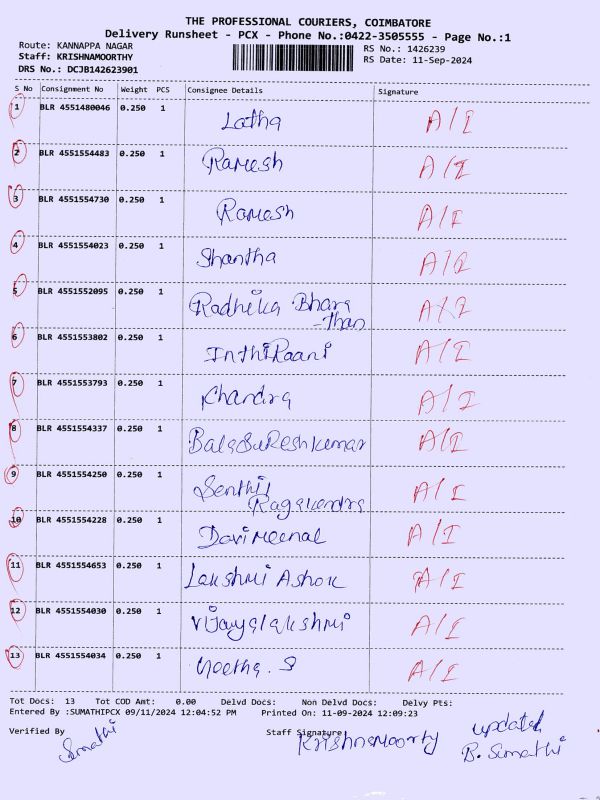 THE PROFESSIONAL COURIERS, COIMBATORE
Delivery Runsheet - PCX - Phone No.:0422-3505555 - Page No.:1
Route: KANNAPPA NAGAR RS No.: 1426239
Staff: KRISHNAMOORTHY RS Date: 11-Sep-2024
DRS No.: DCJB142623901
S No Consignment No Weight PCS Consignee Details Signature
1 BLR 4551480046 0.250 1 Latha A/I
2 BLR 4551554483 0.250 1 Ramesh A/I
3 BLR 4551554730 0.250 1 Ramesh A/I
4 BLR 4551554023 0.250 1 Shantha A/I
5 BLR 4551552095 0.250 1 Radhika Bhara A/I
-than
6 BLR 4551553802 0.250 1 InthiRaani A/I
7 BLR 4551553793 0.250 1 Chandra A/I
8 BLR 4551554337 0.250 1 BalaSuReshkumar A/I
9 BLR 4551554250 0.250 1 Senthil A/I
Ragavendra
10 BLR 4551554228 0.250 1 A/I
11 BLR 4551554653 0.250 1 Lakshmi Ashok A/I
12 BLR 4551554030 0.250 1 Vijayalakshmi A/I
13 BLR 4551554034 0.250 1 Geetha. S A/I
Tot Docs: 13 Tot COD Amt: 0.00 Delvd Docs: Non Delvd Docs: Delvy Pts:
Entered By :SUMATHIPCX 09/11/2024 12:04:52 PM Printed On: 11-09-2024 12:09:23
Verified By Sumathi Staff Signature: Krishnamoorty updated
B. Sumathi